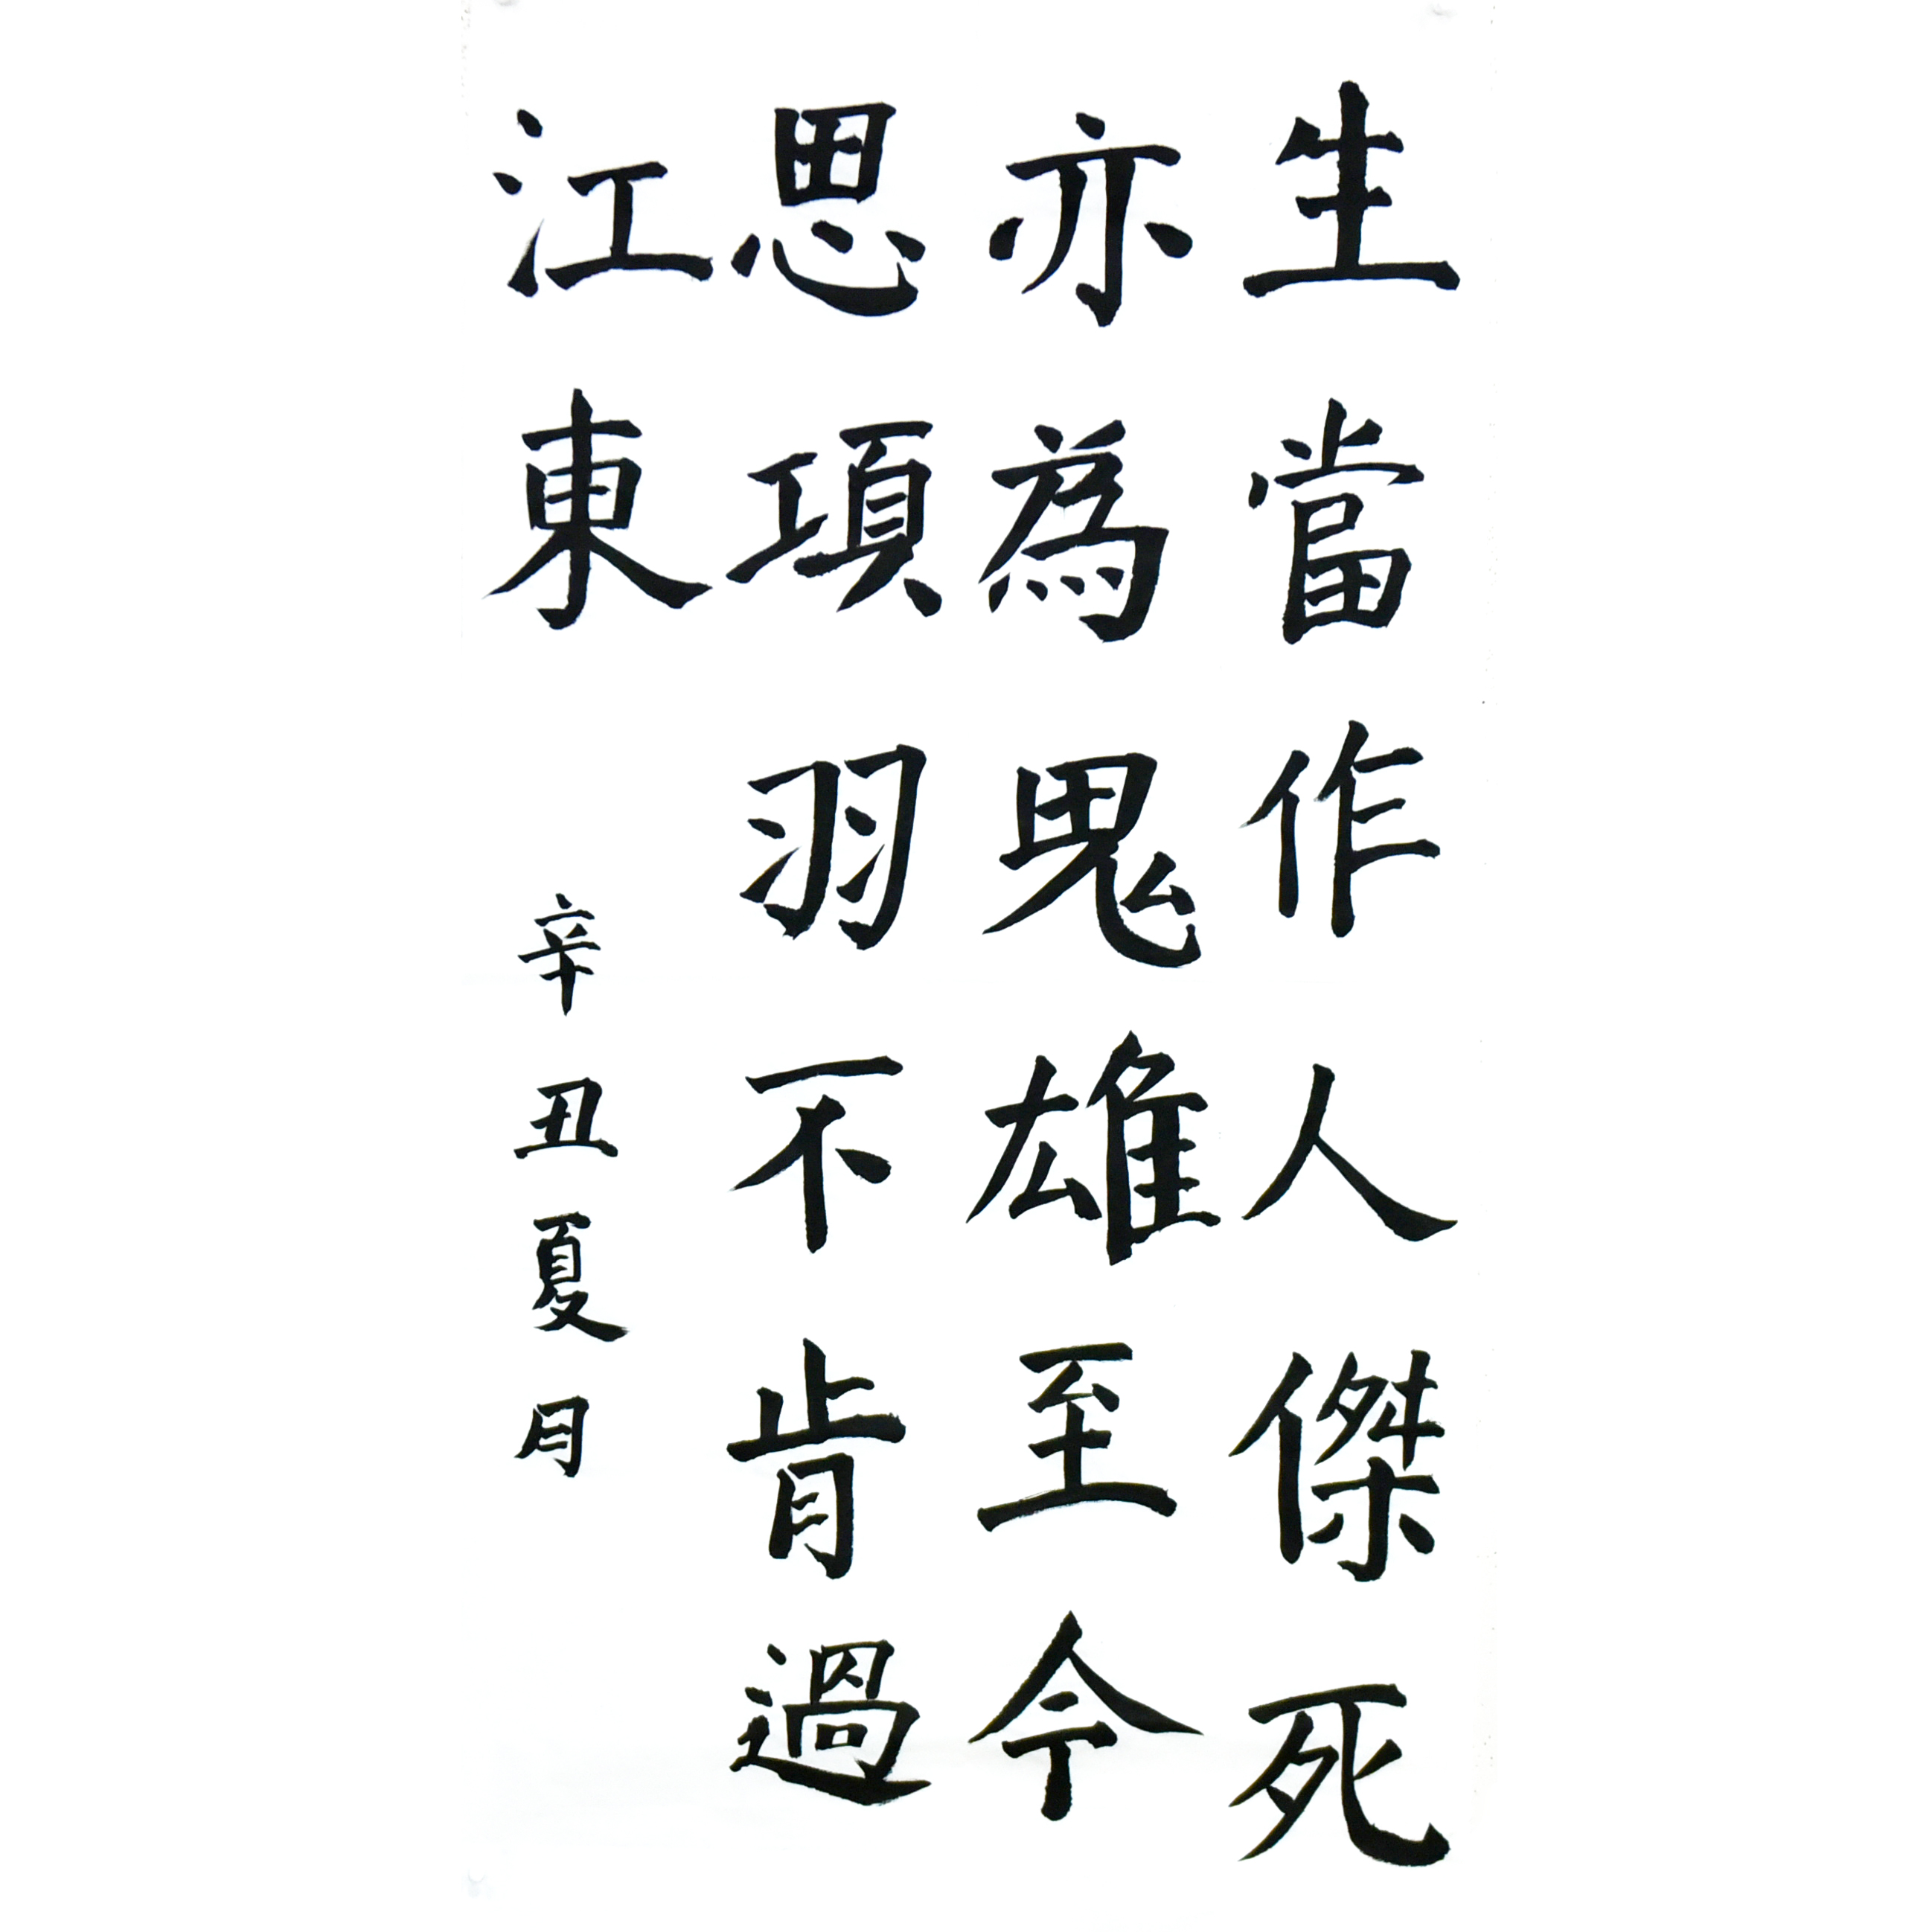 生當作人傑死
亦為鬼雄至今
思項羽不肯過
江東
辛丑夏月